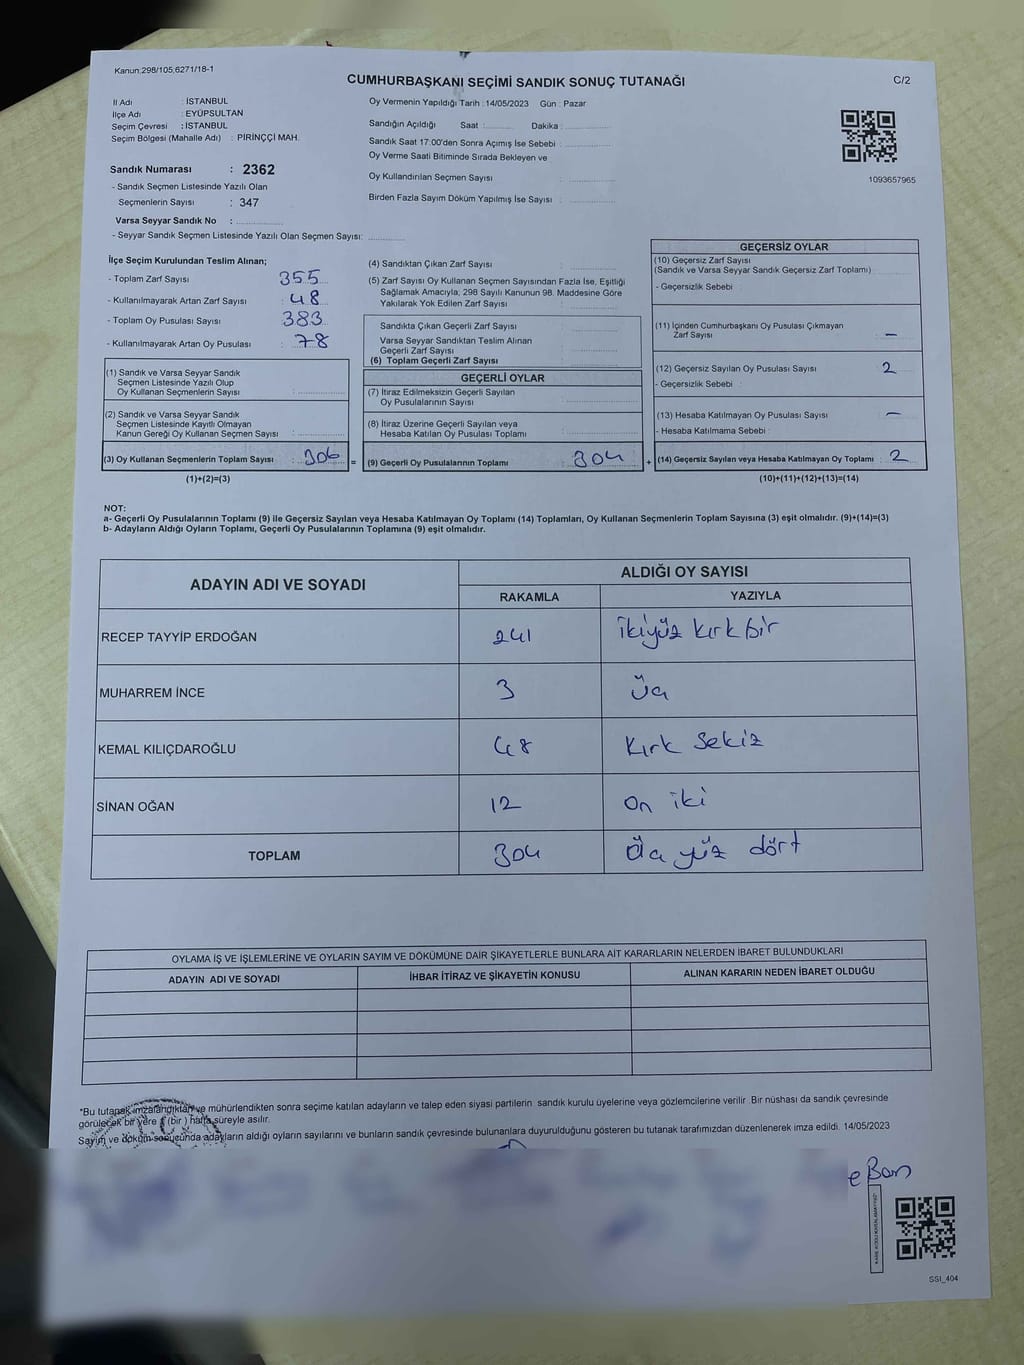 Kanun;298/105,6271/18-1
CUMHURBAŞKANI SEÇİMİ SANDIK SONUÇ TUTANAĞI
C/2
İl Adı : İSTANBUL
İlçe Adı : EYÜPSULTAN
Seçim Çevresi : İSTANBUL
Seçim Bölgesi (Mahalle Adı) : PİRİNÇÇİ MAH.
Oy Vermenin Yapıldığı Tarih :14/05/2023 Gün : Pazar
Sandığın Açıldığı Saat : Dakika :
Sandık Saat 17:00'den Sonra Açımış İse Sebebi :
Oy Verme Saati Bitiminde Sırada Bekleyen ve
Oy Kullandırılan Seçmen Sayısı :
Birden Fazla Sayım Döküm Yapılmış İse Sayısı :
1093657965
Sandık Numarası : 2362
- Sandık Seçmen Listesinde Yazılı Olan
Seçmenlerin Sayısı : 347
Varsa Seyyar Sandık No :
- Seyyar Sandık Seçmen Listesinde Yazılı Olan Seçmen Sayısı:
İlçe Seçim Kurulundan Teslim Alınan;
- Toplam Zarf Sayısı : 355
- Kullanılmayarak Artan Zarf Sayısı : 48
- Toplam Oy Pusulası Sayısı : 383
- Kullanılmayarak Artan Oy Pusulası : 78
(1) Sandık ve Varsa Seyyar Sandık
Seçmen Listesinde Yazılı Olup
Oy Kullanan Seçmenlerin Sayısı :
(2) Sandık ve Varsa Seyyar Sandık
Seçmen Listesinde Kayıtlı Olmayan
Kanun Gereği Oy Kullanan Seçmen Sayısı :
(3) Oy Kullanan Seçmenlerin Toplam Sayısı : 306
(1)+(2)=(3)
(4) Sandıktan Çıkan Zarf Sayısı :
(5) Zarf Sayısı Oy Kullanan Seçmen Sayısından Fazla İse, Eşitliği
Sağlamak Amacıyla; 298 Sayılı Kanunun 98. Maddesine Göre
Yakılarak Yok Edilen Zarf Sayısı :
Sandıkta Çıkan Geçerli Zarf Sayısı :
Varsa Seyyar Sandıktan Teslim Alınan
Geçerli Zarf Sayısı :
(6) Toplam Geçerli Zarf Sayısı
GEÇERLİ OYLAR
(7) İtiraz Edilmeksizin Geçerli Sayılan
Oy Pusulalarının Sayısı :
(8) İtiraz Üzerine Geçerli Sayılan veya
Hesaba Katılan Oy Pusulası Toplamı :
= (9) Geçerli Oy Pusulalarının Toplamı : 304
GEÇERSİZ OYLAR
(10) Geçersiz Zarf Sayısı
(Sandık ve Varsa Seyyar Sandık Geçersiz Zarf Toplamı) :
- Geçersizlik Sebebi :
(11) İçinden Cumhurbaşkanı Oy Pusulası Çıkmayan
Zarf Sayısı : –
(12) Geçersiz Sayılan Oy Pusulası Sayısı : 2
- Geçersizlik Sebebi :
(13) Hesaba Katılmayan Oy Pusulası Sayısı : –
- Hesaba Katılmama Sebebi :
+ (14) Geçersiz Sayılan veya Hesaba Katılmayan Oy Toplamı : 2
(10)+(11)+(12)+(13)=(14)
NOT:
a- Geçerli Oy Pusulalarının Toplamı (9) ile Geçersiz Sayılan veya Hesaba Katılmayan Oy Toplamı (14) Toplamları, Oy Kullanan Seçmenlerin Toplam Sayısına (3) eşit olmalıdır. (9)+(14)=(3)
b- Adayların Aldığı Oyların Toplamı, Geçerli Oy Pusulalarının Toplamına (9) eşit olmalıdır.
ADAYIN ADI VE SOYADI
ALDIĞI OY SAYISI
RAKAMLA YAZIYLA
RECEP TAYYİP ERDOĞAN 241 ikiyüz kırk bir
MUHARREM İNCE 3 üç
KEMAL KILIÇDAROĞLU 48 Kırk sekiz
SİNAN OĞAN 12 On iki
TOPLAM 304 Üç yüz dört
OYLAMA İŞ VE İŞLEMLERİNE VE OYLARIN SAYIM VE DÖKÜMÜNE DAİR ŞİKAYETLERLE BUNLARA AİT KARARLARIN NELERDEN İBARET BULUNDUKLARI
ADAYIN ADI VE SOYADI İHBAR İTİRAZ VE ŞİKAYETİN KONUSU ALINAN KARARIN NEDEN İBARET OLDUĞU
*Bu tutanak imzalandıktan ve mühürlendikten sonra seçime katılan adayların ve talep eden siyasi partilerin sandık kurulu üyelerine veya gözlemcilerine verilir. Bir nüshası da sandık çevresinde
görülecek bir yere 1 (bir ) hafta süreyle asılır.
Sayım ve döküm sonucunda adayların aldığı oyların sayılarını ve bunların sandık çevresinde bulunanlara duyurulduğunu gösteren bu tutanak tarafımızdan düzenlenerek imza edildi. 14/05/2023
SSI_404